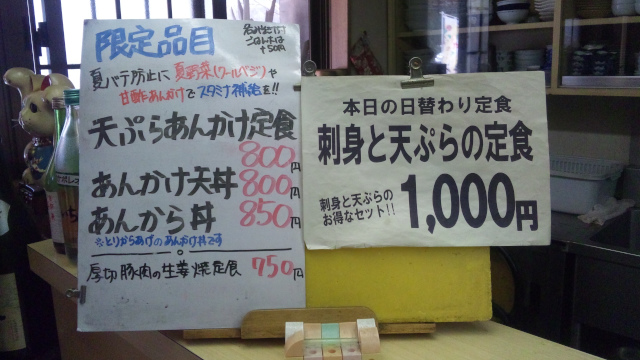 限定品目
夏バテ防止に夏野菜(クールベジ)や
甘酢あんかけでスタミナ補給を!!
天ぷらあんかけ定食
800円
あんかけ天丼 800円
あんから丼 850円
※とりからあげのあんかけ丼です
厚切豚肉の生姜焼定食 750円
本日の日替わり定食
刺身と天ぷらの定食
刺身と天ぷらの
お得なセット!!
1,000円